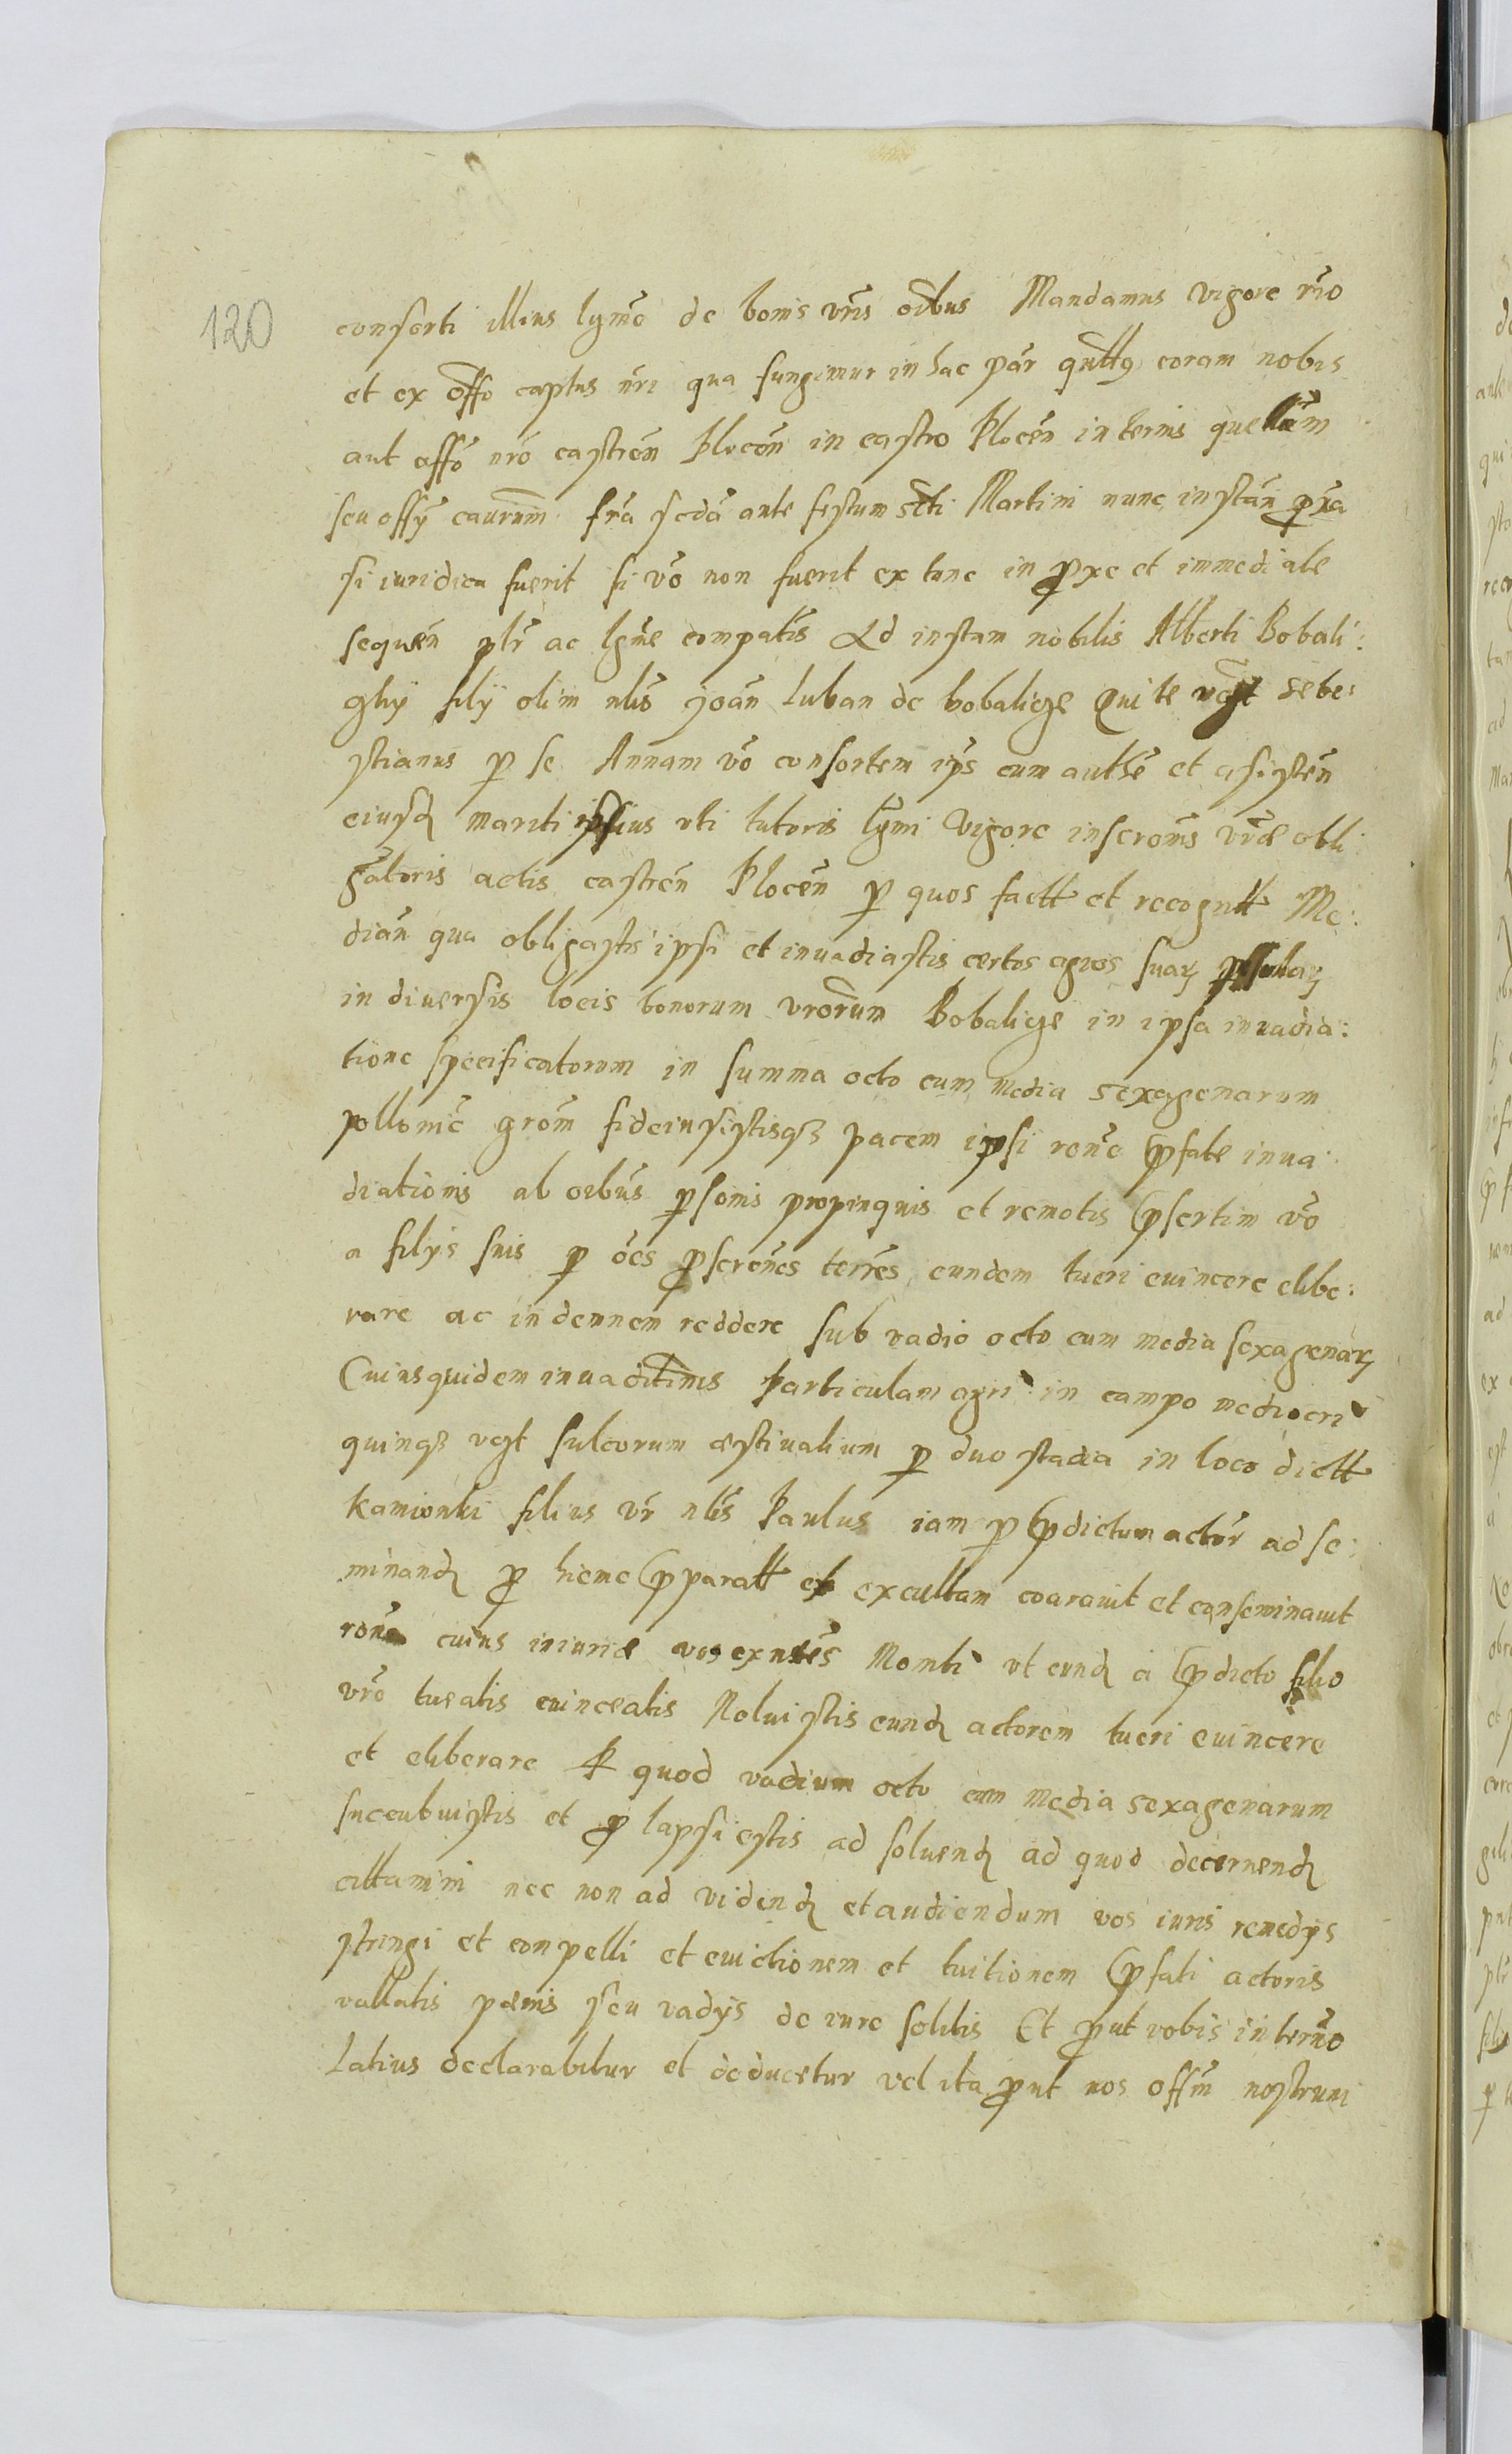 120
consorti illius lgmo de bonis vris oibus Mandamus vigore rmo
et ex offo captus nri qua fungimur in hac par qutts coram nobis
aut offo nro castren Plocen in castro Plocen in termis quellam
seu offy caurum fra scda ante festum scti Martini nunc instan pxa
si iuridica fuerit si vo non fuerit ex tunc in pxe et immediate
sequen plr ac lgme compatis Ad instam nobilis Alberti Bobali:
ghy fily olim nlis Joan Luban de bobalicze Qui te vgt sebe:
stianus p se Annam vo consortem eps cum authe et assisten
eiusd mariti ipsius uti tutoris lgmi Vigore inscroms vrae obli
gatoris actis castren Plocen p quos factt et recogntt Me:
dian qua obligastis ipsi et inuadiastis certos agros suar
in diuersis locis bonorum vrorum Bobalicze in ipsa inuadia:
tione specificatorum in summa octo cum media sexagenarum
pollonic grom fideiussistisq3 pacem ipsi rone pfate inua
diationis ab oibus psonis propinquis et remotis psertim vo
a filys suis p oes pscrenes terres eundem tueri euincere elibe:
rare ac indemnem reddere sub vadio octo cum media sexagenar
Cuiusquidem inuaditionis Particulam agri in campo mediocri
quinq3 vgt sulcorum aestiualium p duo stadia in loco dictt
Kamionki filius vr nlis Paulus iam p pdictum actor ad se:
minand p hieme pparatt et excultam coarauit et conseminauit
rone cuius iniuriae vos exntes Moniti vt eund a pdicto filio
vro tueatis euinceatis Noluistis eund actorem tueri euincere
et eliberare P quod vadium octo cum media sexagenarum
succubuistis et p lapsi estis ad soluend ad quod decernend
cittamini nec non ad vidend et audiendum vos iuris remedys
stringi et conpelli et euictionem et tuitionem pfati actoris
vallatis paenis seu vadys de iure solitis Et put vobis in termo
Latius declarabitur et deducetur vel ita put nos offm nostrum